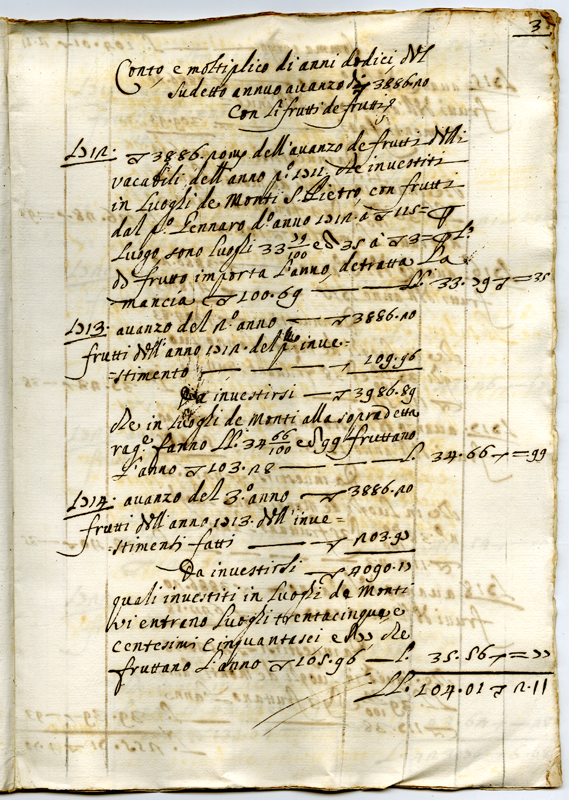 3
Conto, e moltiplico di anni dodici del
sudetto annuo avanzo di 3886.20
con li frutti de frutti
1712. 3886.20 dell'avanzo de frutti delli
vacabili dell'anno p.º 1711. che investiti
in Luoghi de Monti S. Pietro, con frutti
dal p.º Gennaro d.º anno 1712. a 115=
Luogo, sono Luoghi 33 79/100 e 35 a 3=
di frutto importa l'anno, detratta la
mancia 100.69 — LL. 33.79 = 35
1713. avanzo del 2.º anno — 3886.20
frutti dell'anno 1712. del p.º inve=
=stimento — 109.96
Da investirsi — 3986.89
che in Luoghi de Monti alla sopradetta
rag.e fanno LL. 34 66/100 e 99 fruttano
l'anno 103.28 — L. 34.66 = 99
1714. avanzo del 3.º anno — 3886.20
frutti dell'anno 1713. dell'inve=
=stimenti fatti — 203.97
Da investirsi — 4090.17
quali investiti in Luoghi de Monti
vi entrano Luoghi trentacinque, e
centesimi cinquantasei e 77 che
fruttano l'anno 105.96 — L. 35.56 = 77
LL. 104.01 2.11